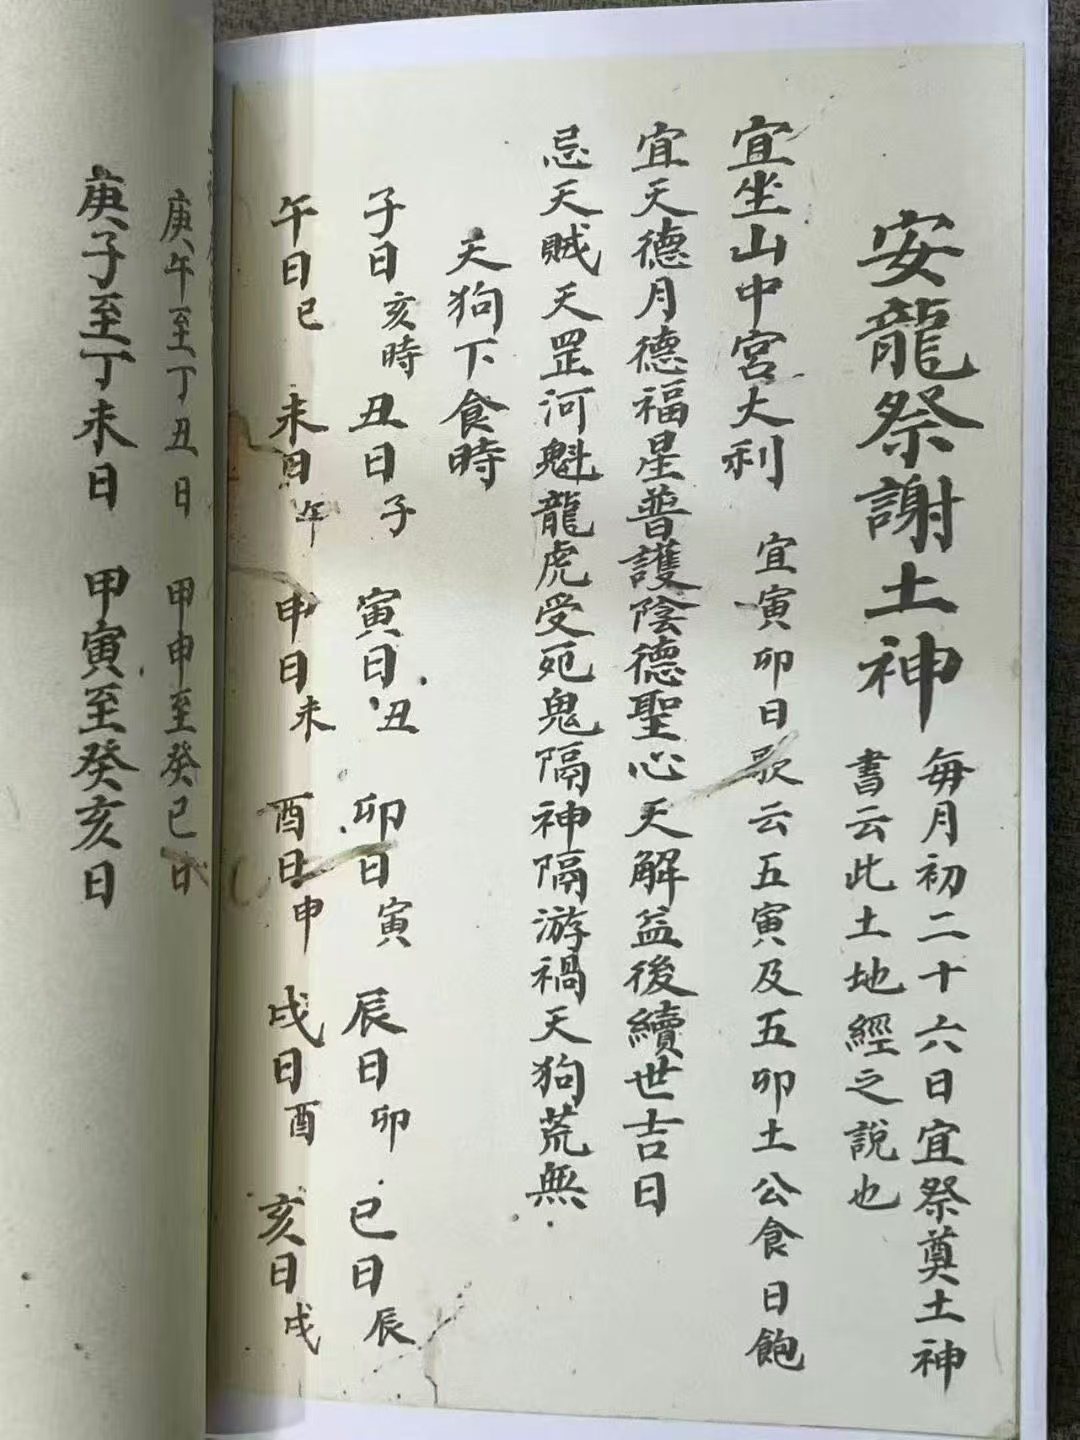 安龍祭謝土神
每月初二十六日宜祭奠土神
書云此土地經之說也
宜坐山中宮大利 宜寅卯日歌云五寅及五卯土公食日飽
宜天德月德福星普護陰德聖心天解益後續世吉日
忌天賊天罡河魁龍虎受死鬼隔神隔游禍天狗荒無
天狗下食時
子日亥時 丑日子 寅日丑 卯日寅 辰日卯 巳日辰
午日巳 未日午 申日未 酉日申 戌日酉 亥日戌
庚午至丁丑日 甲申至癸巳日
庚子至丁未日 甲寅至癸亥日